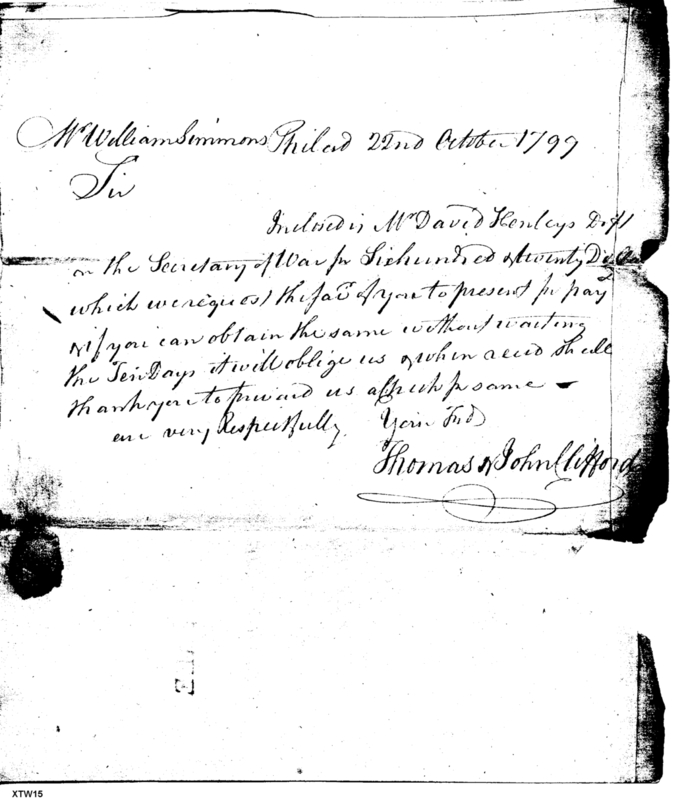 Mr William Simmons Philad 22nd October 1799
Sir
Inclosed is Mr David Henleys Dft
on the Secretary of War for Sixhundred & twenty Dollars
which we request the favr of you to present for pay
& if you can obtain the same without waiting
the Ten Days it will oblige us & when recd shall
thank you to forward us a check for same —
are very Respectfully Your Frds
Thomas & John Clifford
XTW15